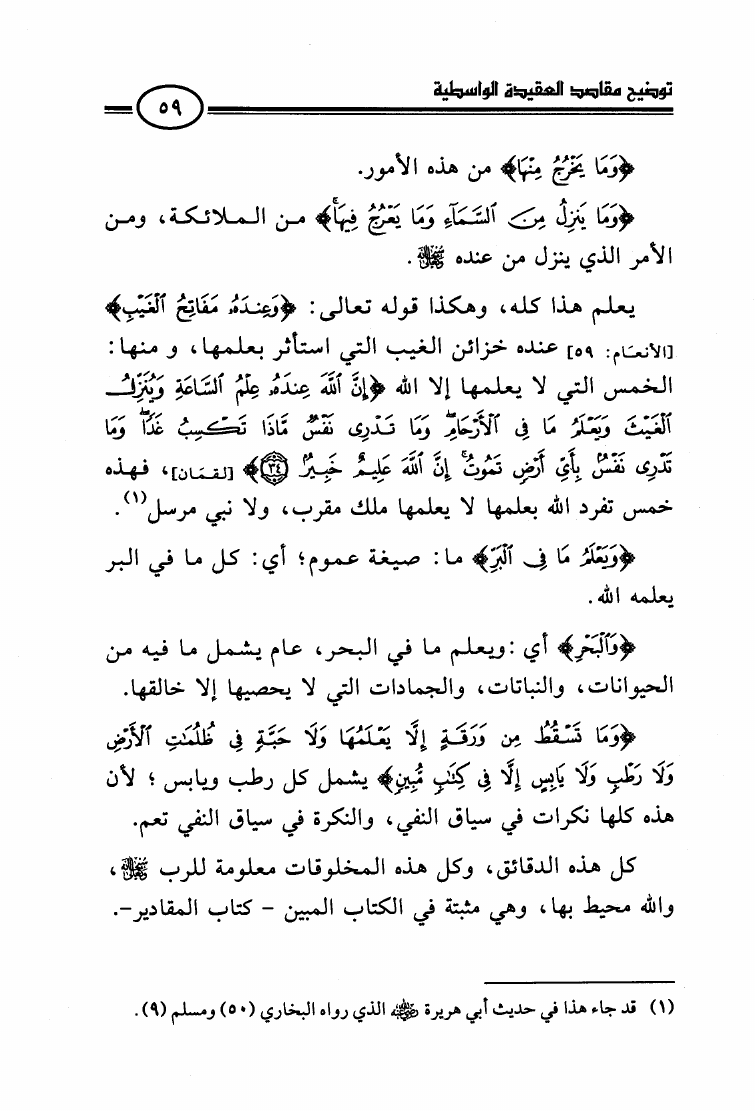 توضيح مقاصد العقيدة الواسطية
٥٩
﴿وَمَا يَخْرُجُ مِنْهَا﴾ من هذه الأمور.
﴿وَمَا يَنزِلُ مِنَ ٱلسَّمَآءِ وَمَا يَعْرُجُ فِيهَا ۚ﴾ من الملائكة، ومن
الأمر الذي ينزل من عنده ﷻ.
يعلم هذا كله، وهكذا قوله تعالى: ﴿وَعِندَهُۥ مَفَاتِحُ ٱلْغَيْبِ﴾
[الأنعَام: ٥٩] عنده خزائن الغيب التي استأثر بعلمها، و منها:
الخمس التي لا يعلمها إلا الله ﴿إِنَّ ٱللَّهَ عِندَهُۥ عِلْمُ ٱلسَّاعَةِ وَيُنَزِّلُ
ٱلْغَيْثَ وَيَعْلَمُ مَا فِى ٱلْأَرْحَامِ ۖ وَمَا تَدْرِى نَفْسٌ مَّاذَا تَكْسِبُ غَدًا ۖ وَمَا
تَدْرِى نَفْسٌۢ بِأَىِّ أَرْضٍ تَمُوتُ ۚ إِنَّ ٱللَّهَ عَلِيمٌ خَبِيرٌۢ ٣٤﴾ [لقمَان]، فهذه
خمس تفرد الله بعلمها لا يعلمها ملك مقرب، ولا نبي مرسل(١).
﴿وَيَعْلَمُ مَا فِى ٱلْبَرِّ﴾ ما: صيغة عموم؛ أي: كل ما في البر
يعلمه الله.
﴿وَٱلْبَحْرِ﴾ أي :ويعلم ما في البحر، عام يشمل ما فيه من
الحيوانات، والنباتات، والجمادات التي لا يحصيها إلا خالقها.
﴿وَمَا تَسْقُطُ مِن وَرَقَةٍ إِلَّا يَعْلَمُهَا وَلَا حَبَّةٍ فِى ظُلُمَٰتِ ٱلْأَرْضِ
وَلَا رَطْبٍ وَلَا يَابِسٍ إِلَّا فِى كِتَٰبٍ مُّبِينٍ﴾ يشمل كل رطب ويابس ؛ لأن
هذه كلها نكرات في سياق النفي، والنكرة في سياق النفي تعم.
كل هذه الدقائق، وكل هذه المخلوقات معلومة للرب ﷻ،
والله محيط بها، وهي مثبتة في الكتاب المبين - كتاب المقادير-.
(١) قد جاء هذا في حديث أبي هريرة رضي الله عنه الذي رواه البخاري (٥٠) ومسلم (٩).